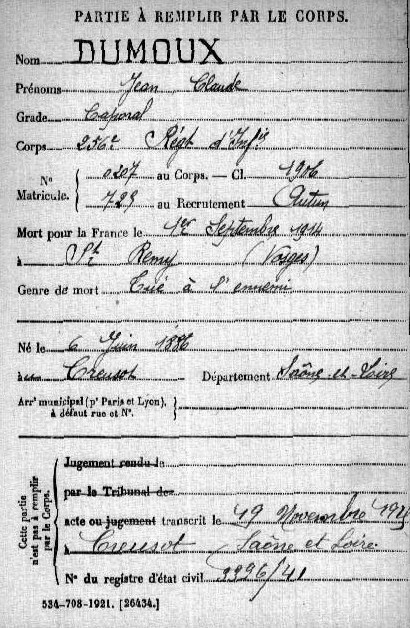 PARTIE À REMPLIR PAR LE CORPS.
Nom DUMOUX
Prénoms Jean Claude
Grade Caporal
Corps 256e Régt d'Infie
N° Matricule. { 0207 au Corps. — Cl. 1906
729 au Recrutement Autun
Mort pour la France le 1er Septembre 1914
à St Remy (Vosges)
Genre de mort Tué à l'ennemi
Né le 6 Juin 1886
au Creusot Département Saône-et-Loire
Arrt municipal (pr Paris et Lyon), à défaut rue et N°. }
Cette partie n'est pas à remplir par le Corps.
Jugement rendu le
par le Tribunal de
acte ou jugement transcrit le 19 Novembre
à Creusot Saône et Loire
N° du registre d'état civil 2226/41
534-708-1921. [26434.]